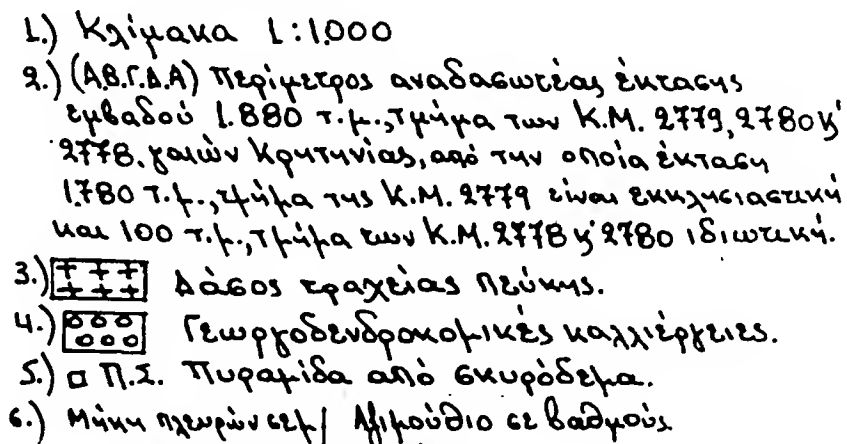 1.) Κλίμακα 1:1.000
2.) (Α.Β.Γ.Δ.Α) Περίμετρος αναδασωτέας έκτασης
εμβαδού 1.880 τ.μ., τμήμα των Κ.Μ. 2779, 2780 κ'
2778. γαιών Κρητηνίας, από την οποία έκταση
1780 τ.μ., τμήμα της Κ.Μ. 2779 είναι εκκλησιαστική
και 100 τ.μ., τμήμα των Κ.Μ. 2778 κ' 2780 ιδιωτική.
3.) Δάσος τραχείας πεύκης.
4.) Γεωργοδενδροκομικές καλλιέργειες.
5.) Π.Σ. Πυραμίδα από σκυρόδεμα.
6.) Μήκη πλευρών σε μ/ Αζιμούθιο σε βαθμούς